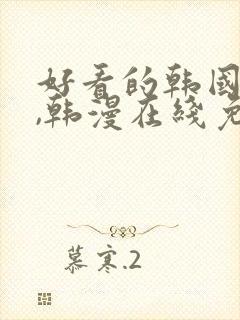 好看的韩国
,韩漫在线免
慕寒.2